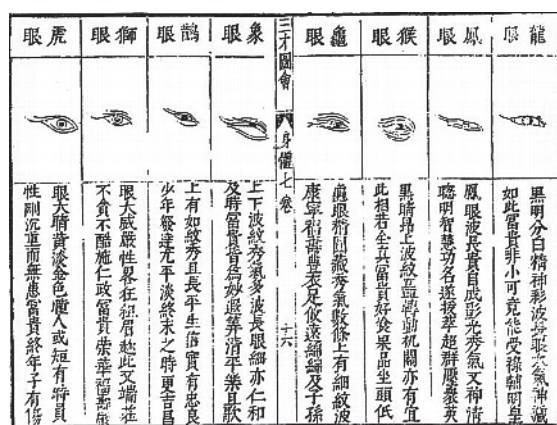 龍眼
黑明分白精神彩波長眼大氣神藏
如此富貴非小可竟能受祿輔明皇
鳳眼
鳳眼波長貴自成影光秀氣又神清
聰明智慧功名遂拔萃超群壓衆英
猴眼
黑睛昂上波紋疊轉動机關亦有宜
此相若全真富貴好食果品坐頭低
龜眼
龜眼睛圓藏秀氣數條上有細紋波
康寧福壽豐衣足悠遠綿綿及子孫
三才圖會
身體七卷
十六
象眼
上下波紋秀氣多波長眼細亦仁和
及時富貴皆為妙遐算清平樂且歌
鵲眼
上有如紋秀且長平生信實有忠良
少年發達尤平淡終末之時更吉昌
獅眼
眼大威嚴性畧狂粗眉趂此又端莊
不貪不酷施仁政富貴榮華福壽康
虎眼
眼大睛黃淡金色瞳人或短有時員
性剛沉重而無患富貴終年子有傷